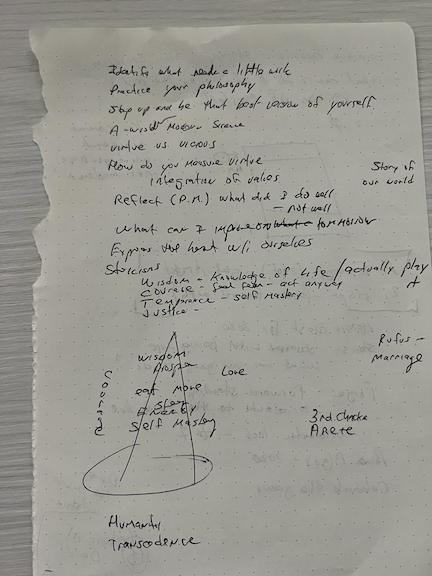 Identify what needs a little work
Practice your philosophy
Step up and be that best version of yourself.
A -world Measure Science
virtue vs. vicious
How do you measure virtue
integration of values
Story of
our world
Reflect (P.M.) what did I do well
- not well
What can I improve on tomorrow
Express the best w/i ourselves
Stoicism
Wisdom - Knowledge of Life / actually play it
Courage - feel fear - act anyway
Temperance - self Mastery
Justice -
Rufus -
Marriage
wisdom
Love
Courage
eat move
sleep
Energy
Self Mastery
3rd Chakra
Arete
Humanity
Transcendence